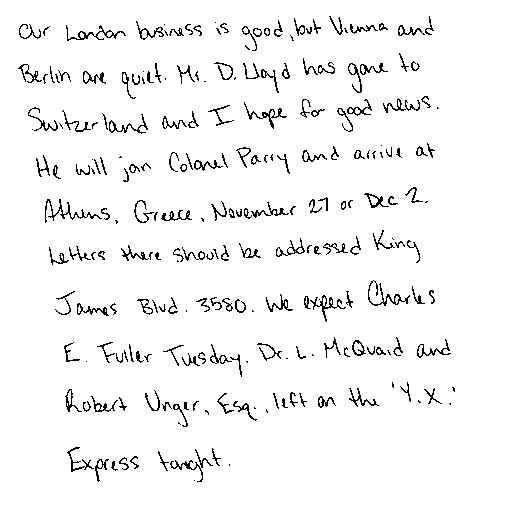 Our London business is good, but Vienna and
Berlin are quiet. Mr. D. Lloyd has gone to
Switzerland and I hope for good news.
He will join Colonel Parry and arrive at
Athens, Greece, November 27 or Dec 2.
Letters there should be addressed King
James Blvd. 3580. We expect Charles
E. Fuller Tuesday. Dr. L. McQuaid and
Robert Unger, Esq., left on the 'Y.X.'
Express tonight.